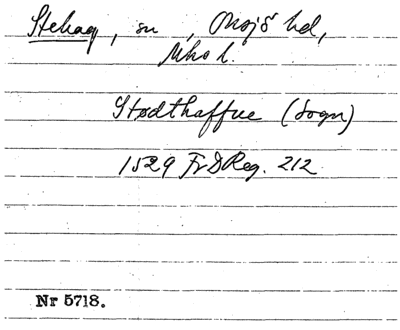 Stehag, sn, Onsjö hd,
Mhs l.
Stodthaffue (Sogn)
1529 FrDReg. 212
Nr 5718.